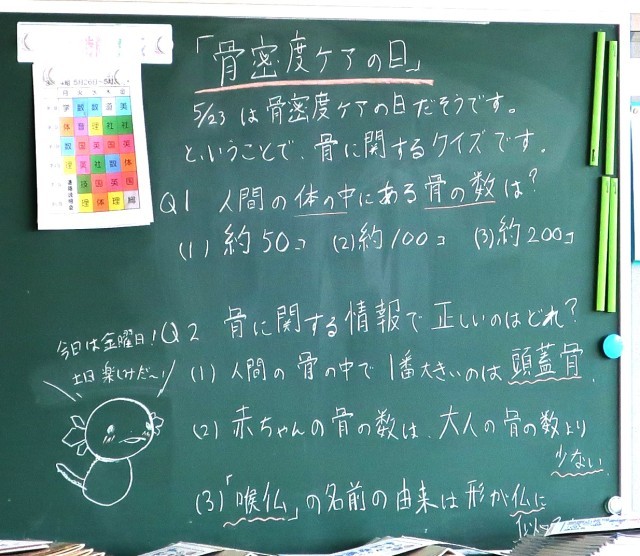 「骨密度ケアの日」
5/23 は骨密度ケアの日だそうです。
ということで、骨に関するクイズです。
Q1 人間の体の中にある骨の数は?
(1) 約50コ (2) 約100コ (3) 約200コ
Q2 骨に関する情報で正しいのはどれ?
(1) 人間の骨の中で1番大きいのは頭蓋骨.
(2) 赤ちゃんの骨の数は、大人の骨の数より
少ない
(3) 「喉仏」の名前の由来は形が仏に
今日は金曜日!
土日楽しみだ〜!
月 火 水 木 金
学 数 数 道 美
体 音 理 社 社
数 国 英 英 国
理 英 社 数 体
技 国 英 国
理 体 理 総